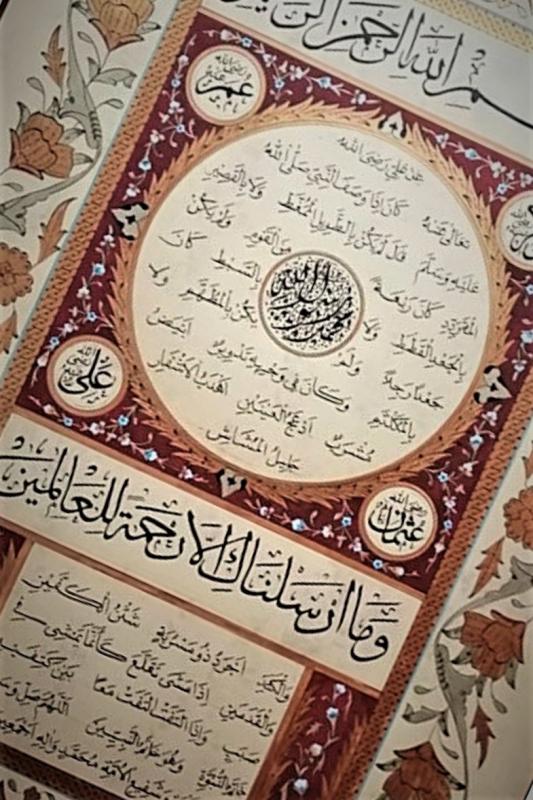 بسم الله الرحمن الرحيم
عمر رضي الله عنه
عن علي رضي الله
تعالى عنه كان اذا وصف النبي صلى الله
عليه وسلم قال لم يكن بالطويل الممغط ولا بالقصير
المتردد كان ربعة من القوم ولم يكن
بالجعد القطط ولا بالسبط كان
جعدا رجلا ولم يكن بالمطهم ولا
بالمكلثم وكان في وجهه تدوير ابيض
مشرب ادعج العينين اهدب الاشفار
جليل المشاش
على رضي الله عنه
عثمان رضي الله عنه
وما ارسلناك الا رحمة للعالمين
والكتد اجرد ذو مسربة شثن الكفين
والقدمين اذا مشى تقلع كأنما يمشي في
صبب واذا التفت التفت معا بين كتفيه
خاتم النبوة وهو خاتم النبيين اللهم صل وسلم
وشفيع الامة محمد واله اجمعين